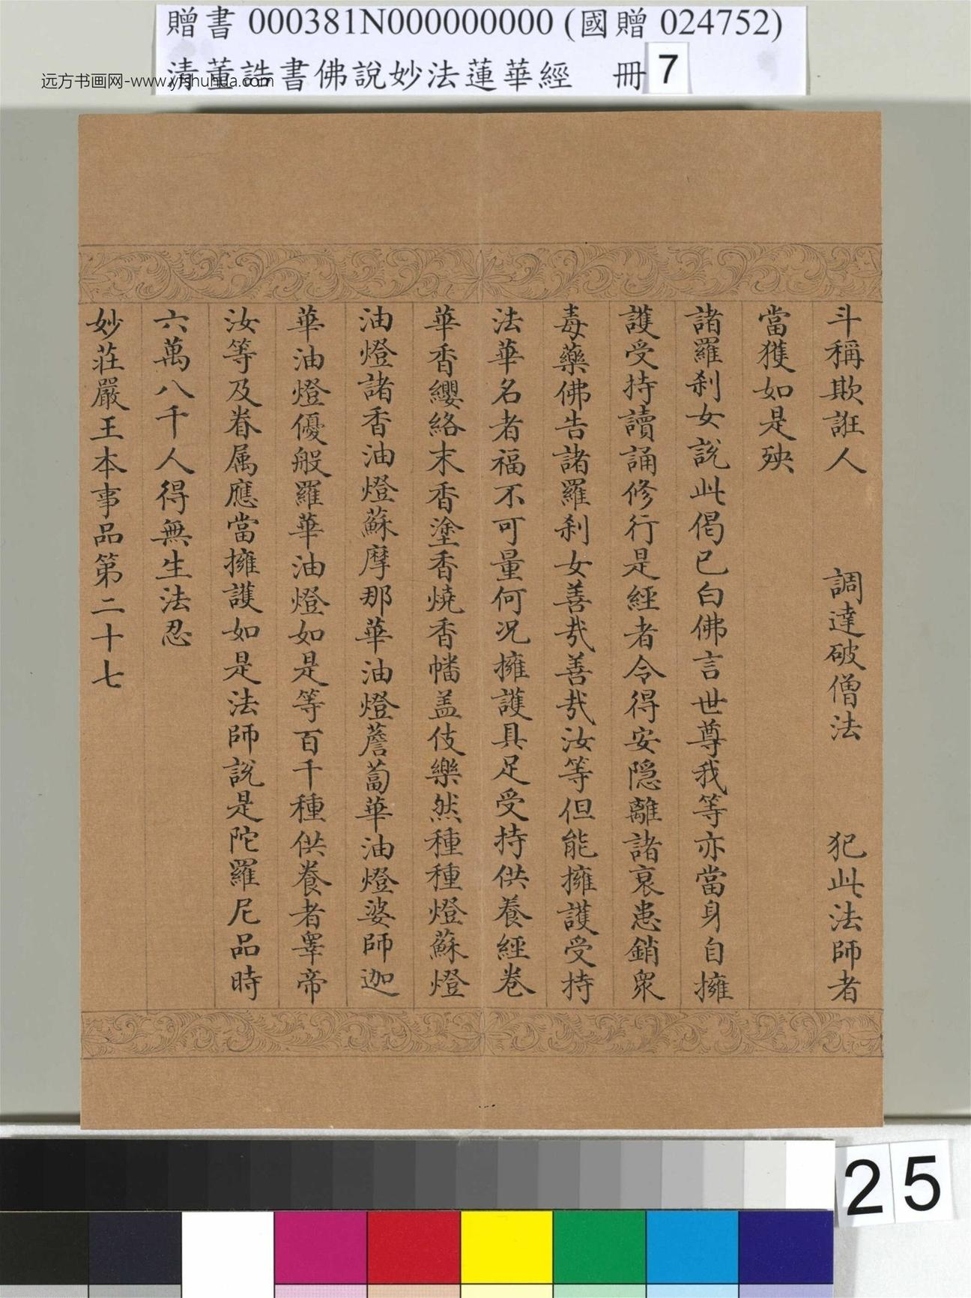 贈書 000381N000000000 (國贈 024752)
清董誥書佛說妙法蓮華經 冊 7
远方书画网-www.yfshuhua.com
斗稱欺誑人 調達破僧法 犯此法師者
當獲如是殃
諸羅刹女說此偈已白佛言世尊我等亦當身自擁
護受持讀誦修行是經者令得安隱離諸衰患銷眾
毒藥佛告諸羅刹女善哉善哉汝等但能擁護受持
法華名者福不可量何况擁護具足受持供養經卷
華香纓絡末香塗香燒香幡盖伎樂然種種燈蘇燈
油燈諸香油燈蘇摩那華油燈薝蔔華油燈婆師迦
華油燈優般羅華油燈如是等百千種供養者睪帝
汝等及眷属應當擁護如是法師說是陀羅尼品時
六萬八千人得無生法忍
妙莊嚴王本事品第二十七
25